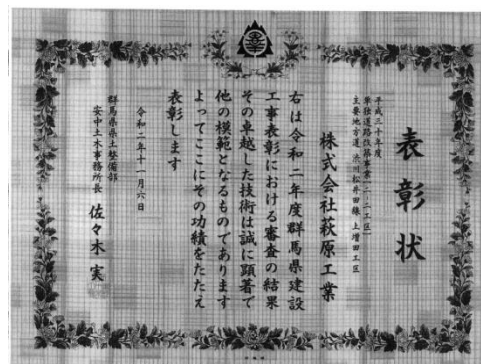 表彰状
平成三十年度
単独道路改築事業(二-二工区)
主要地方道 渋川松井田線 上増田工区
株式会社萩原工業
右は令和二年度群馬県建設
工事表彰における審査の結果
その卓越した技術は誠に顕著で
他の模範となるものであります
よってここにその功績をたたえ
表彰します
令和二年十一月六日
群馬県県土整備部
安中土木事務所長 佐々木 実